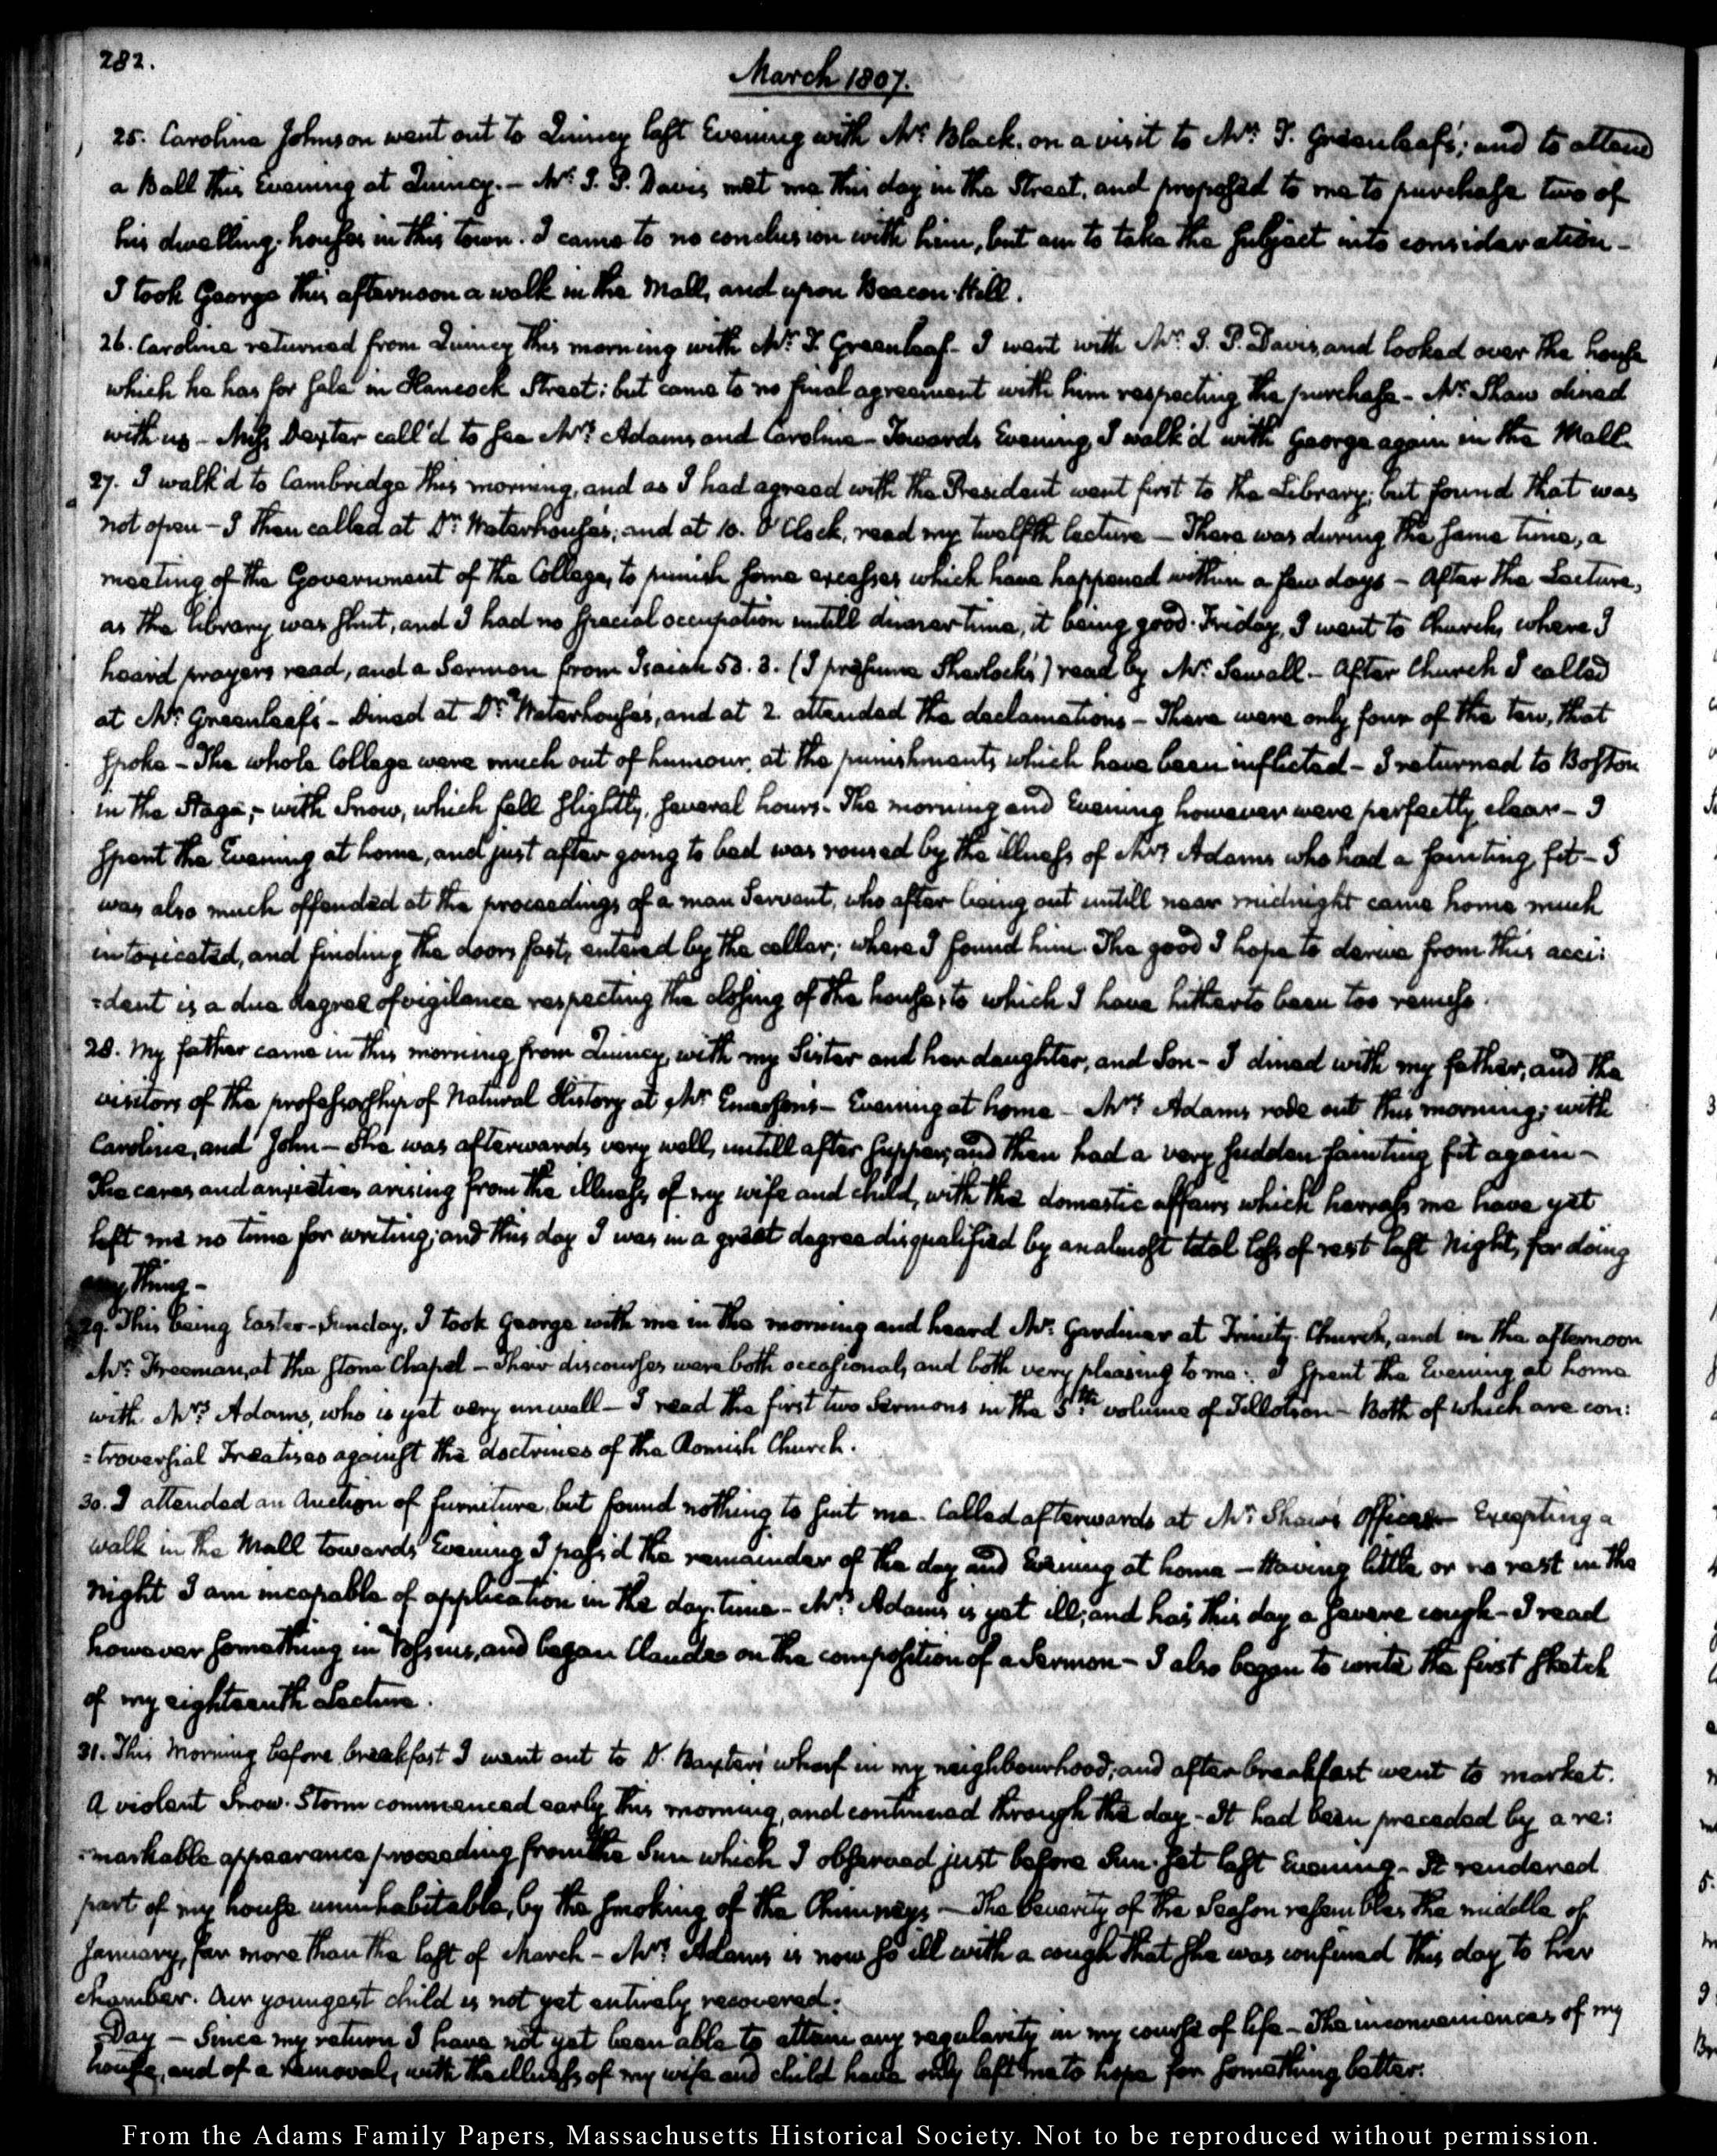 282.
March 1807.
25. Caroline Johnson went out to Quincy last Evening with Mrs. Black, on a visit to Mrs. T. Greenleaf's; and to attend
a Ball this Evening at Quincy. — Mr. I. P. Davis met me this day in the Street, and proposed to me to purchase two of
his dwelling-houses in this town. I came to no conclusion with him, but am to take the subject into consideration —
I took George this afternoon a walk in the Mall, and upon Beacon-Hill.
26. Caroline returned from Quincy this morning with Mr. T. Greenleaf — I went with Mr. I. P. Davis, and looked over the house
which he has for sale in Hancock Street: but came to no final agreement with him respecting the purchase — Mr. Shaw dined
with us — Miss Dexter call'd to see Mrs. Adams, and Caroline — Towards Evening, I walk'd with George again in the Mall.
27. I walk'd to Cambridge this morning, and as I had agreed with the President went first to the Library; but found that was
not open — I then called at Dr. Waterhouse's; and at 10. O'Clock, read my twelfth lecture — There was during the same time, a
meeting of the Government of the College, to punish some excesses which have happened within a few days — After the Lecture,
as the library was shut, and I had no special occupation untill dinner time, it being good-Friday, I went to Church, where I
heard prayers read, and a Sermon from Isaiah 53. 3. (I presume Sherlock's) read by Mr. Sewall — After Church I called
at Mr. Greenleaf's — Dined at Dr. Waterhouse's, and at 2. attended the declamations — There were only four of the ten, that
spoke — The whole College were much out of humour, at the punishments which have been inflicted — I returned to Boston
in the Stage; — with Snow, which fell slightly, several hours. The morning and Evening however were perfectly clear — I
spent the Evening at home, and just after going to bed was roused by the illness of Mrs. Adams who had a fainting fit — I
was also much offended at the proceedings of a man Servant, who after being out untill near midnight came home much
intoxicated, and finding the doors fast, entered by the cellar; where I found him. The good I hope to derive from this acci:
=dent is a due degree of vigilance respecting the closing of the house; to which I have hitherto been too remiss.
28. My father came in this morning from Quincy, with my Sister and her daughter, and Son — I dined with my father, and the
visitors of the professorship of Natural History at Mr. Emerson's — Evening at home — Mrs. Adams rode out this morning; with
Caroline, and John — She was afterwards very well, untill after supper; and then had a very sudden fainting fit again —
The cares and anxieties arising from the illness, of my wife and child, with the domestic affairs which harrass me have yet
left me no time for writing; and this day I was in a great degree disqualified by an almost total loss of rest last Night, for doing
any thing —
29. This being Easter-Sunday, I took George with me in the morning and heard Mr. Gardiner at Trinity-Church, and in the afternoon
Mr. Freeman, at the Stone Chapel — Their discourses were both occasional, and both very pleasing to me. I spent the Evening at home
with Mrs. Adams, who is yet very unwell — I read the first two Sermons in the 5th volume of Tillotson — Both of which are con:
=troversial Treatises against the doctrines of the Romish Church.
30. I attended an Auction of furniture, but found nothing to suit me. Called afterwards at Mr. Shaw's Office — Excepting a
walk in the Mall towards Evening I pass'd the remainder of the day and Evening at home — Having little or no rest in the
Night I am incapable of application in the day-time — Mrs. Adams is yet ill, and has this day a severe cough — I read
however something in Vossius, and began Claude on the composition of a Sermon — I also began to write the first sketch
of my eighteenth Lecture.
31. This Morning before breakfast I went out to D. Baxter's wharf in my neighbourhood; and after breakfast went to market.
A violent Snow-Storm commenced early this morning, and continued through the day — It had been preceded by a re:
=markable appearance proceeding from the Sun which I observed just before Sun-set last Evening — It rendered
part of my house uninhabitable, by the smoking of the Chimneys — The Severity of the Season resembles the middle of
January, far more than the last of March — Mrs. Adams is now so ill with a cough that she was confined this day to her
chamber. Our youngest child is not yet entirely recovered.
Day — Since my return I have not yet been able to attain any regularity in my course of life — The inconveniences of my
house, and of a removal, with the illness of my wife and child have only left me to hope for something better.
From the Adams Family Papers, Massachusetts Historical Society. Not to be reproduced without permission.